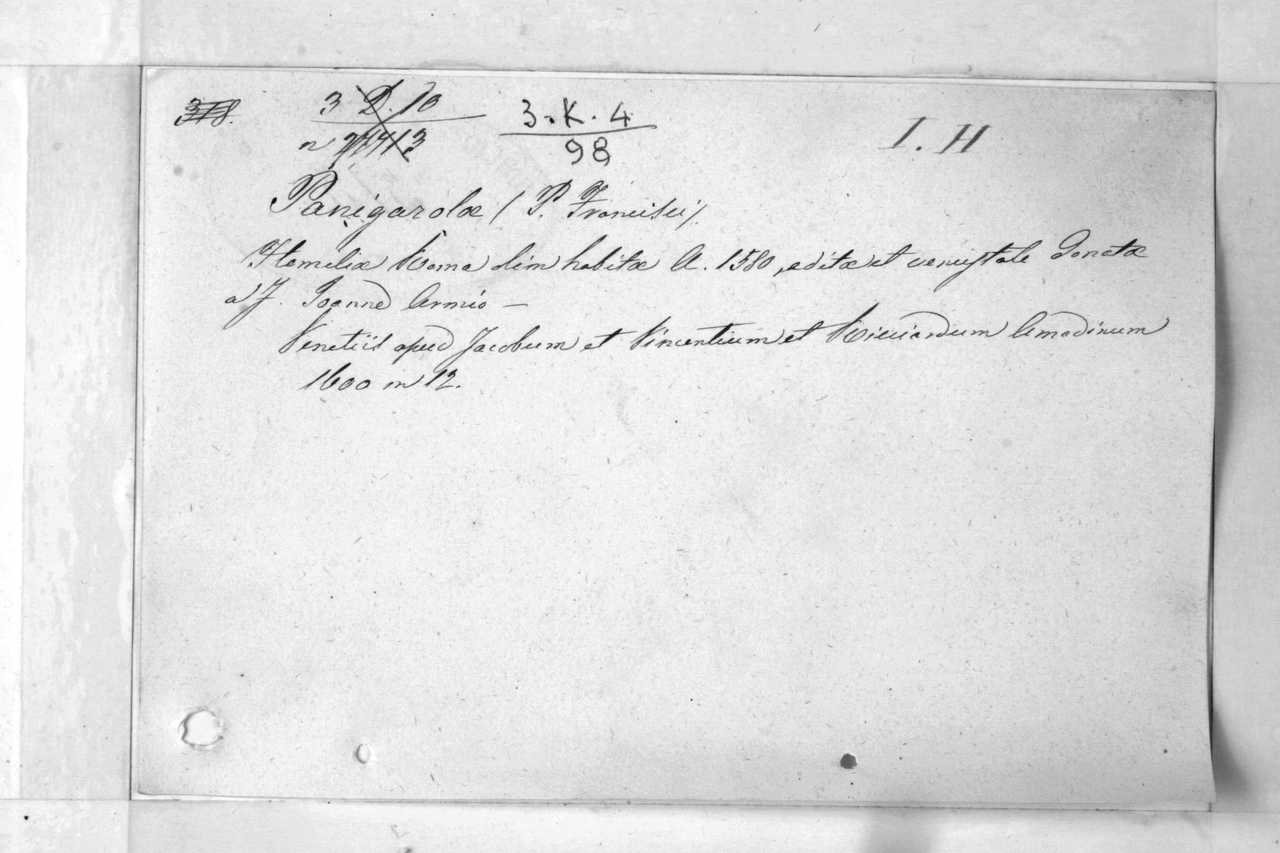 378.
3 D. 10
3.K.4
98
I. H
Panigarolæ ( P. Francisci ).
Homiliæ Romæ olim habitæ A. 1580, editæ et venustate Donatæ
a F. Joanne
Venetiis apud Jacobum et Vincentium et Ricciardum Amadinum
1600 in 12.